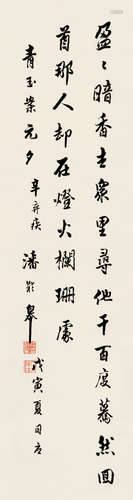 盈〻暗香去衆里尋他千百度驀然回
首那人却在燈火欄珊處
青玉案元夕 辛弃疾 潘齡皋
戊寅夏日書